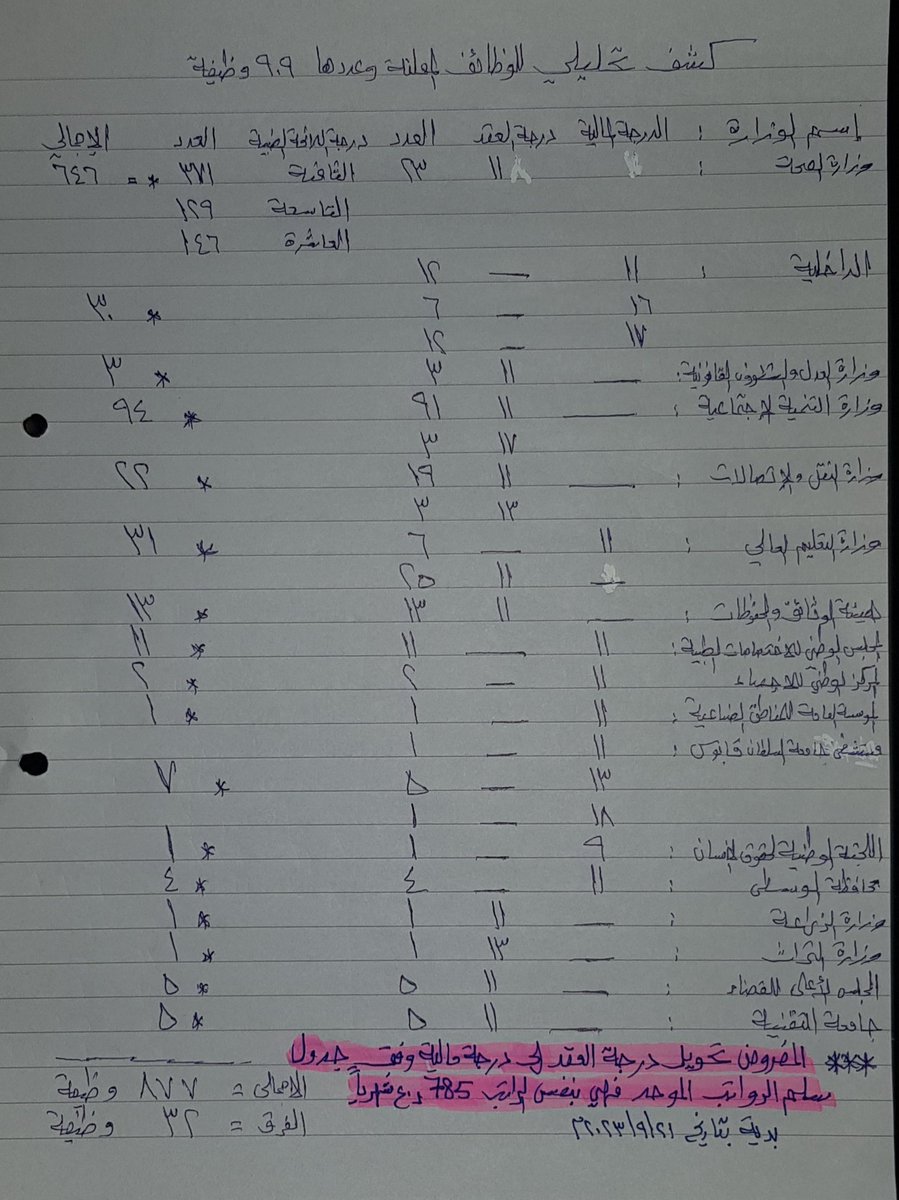 كشف تحليلي للوظائف المعلنة وعددها ٩٠٩ وظيفة
إسم الوزارة : الدرجة المالية درجة العقد العدد درجة اللائحة الطبية العدد الإجمالي
وزارة الصحة : ١١ ٢٣ الثامنة ٣٧١ * = ٦٤٦
التاسعة ١٢٩
العاشرة ١٤٦
الداخلية : ١١ — ١٢
١٦ — ٦ * ٣٠
١٧ — ١٢
وزارة العدل والشؤون القانونية: — ١١ ٣ * ٣
وزارة التنمية الإجتماعية : — ١١ ٩١ * ٩٤
١٧ ٣
وزارة النقل والإتصالات : — ١١ ١٩ * ٢٢
١٣ ٣
وزارة التعليم العالي : ١١ — ٦ * ٣١
— ١١ ٢٥
هيئة الوثائق والمحفوظات : — ١١ ١٣ * ١٣
المجلس الوطني للاختصاصات الطبية : ١١ — ١١ * ١١
المركز الوطني للاحصاء ١١ — ٢ * ٢
المؤسسة العامة للمناطق الصناعية : ١١ — ١ * ١
مستشفى جامعة السلطان قابوس : ١١ — ١
١٣ — ٥ * ٧
١٨ — ١
اللجنة الوطنية لحقوق الإنسان : ٩ — ١ * ١
محافظة الوسطى : ١١ — ٤ * ٤
وزارة الزراعة : — ١١ ١ * ١
وزارة التراث : — ١٣ ١ * ١
المجلس الأعلى للقضاء : — ١١ ٥ * ٥
جامعة التقنية : — ١١ ٥ * ٥
*** المفروض تحويل درجة العقد إلى درجة مالية وفق جدول
سلم الرواتب الموحد فهي بنفس الراتب 785 ر.ع شهرياً
الاجمالي = ٨٧٧ وظيفة
الفرق = ٣٢ وظيفة
بدية بتاريخ ٢٠٢٣/٩/٢١م